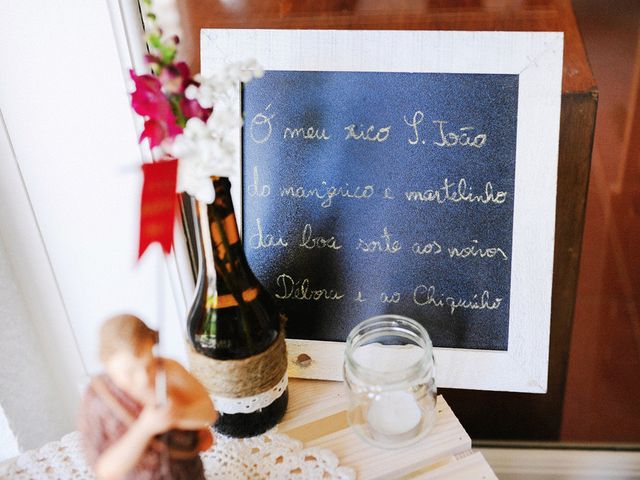 Ó meu rico S. João
do manjerico e martelinho
dai boa sorte aos noivos
Débora e ao Chiquinho